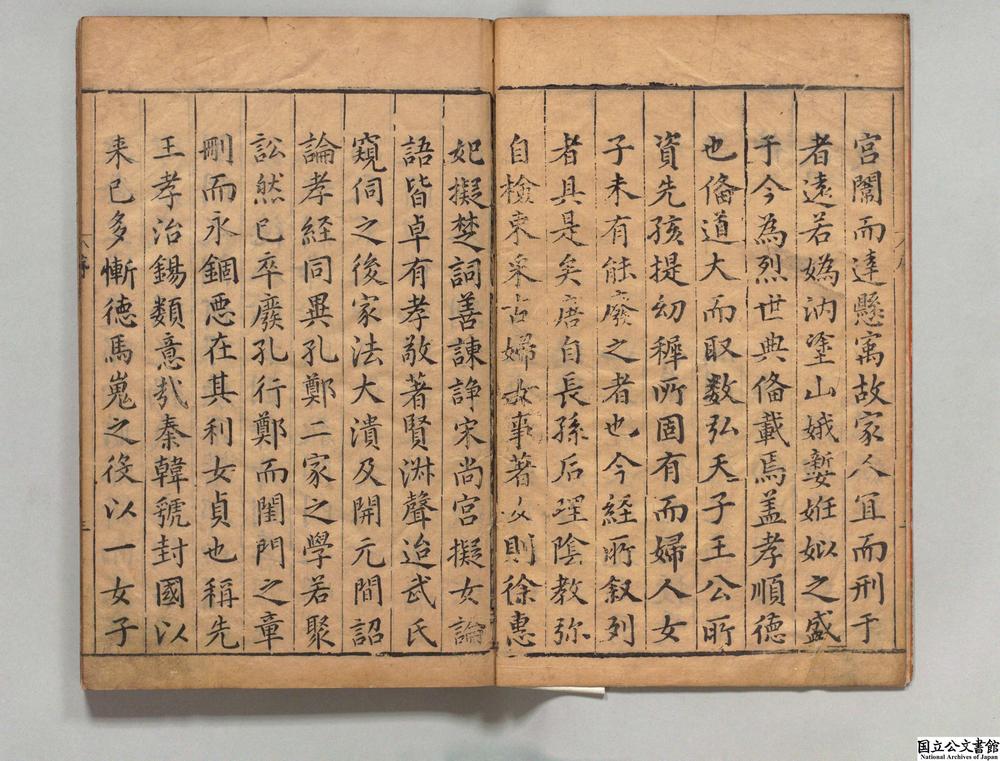 宮闈而達懸㝢故家人宜而刑于
者遠若嬀汭塗山娥嫛妊姒之盛
于今為烈世典俻載焉盖孝順徳
也俻道大而取数弘天子王公所
資先孩提幼穉所固有而婦人女
子未有能廢之者也今経所叙列
者具是矣唐自長孫后理陰教弥
自檢束采古婦女事著女則徐惠
妃擬楚詞善諌諍宋尚宮擬女論
語皆卓有孝敬著賢淋聲迨武氏
窺伺之後家法大潰及開元間詔
論孝経同異孔鄭二家之學若聚
訟然已卒廢孔行鄭而閨門之章
刪而永錮悪在其利女貞也稱先
王孝治錫類意㢤秦韓號封國以
来已多慚徳馬嵬之役以一女子
国立公文書館
National Archives of Japan